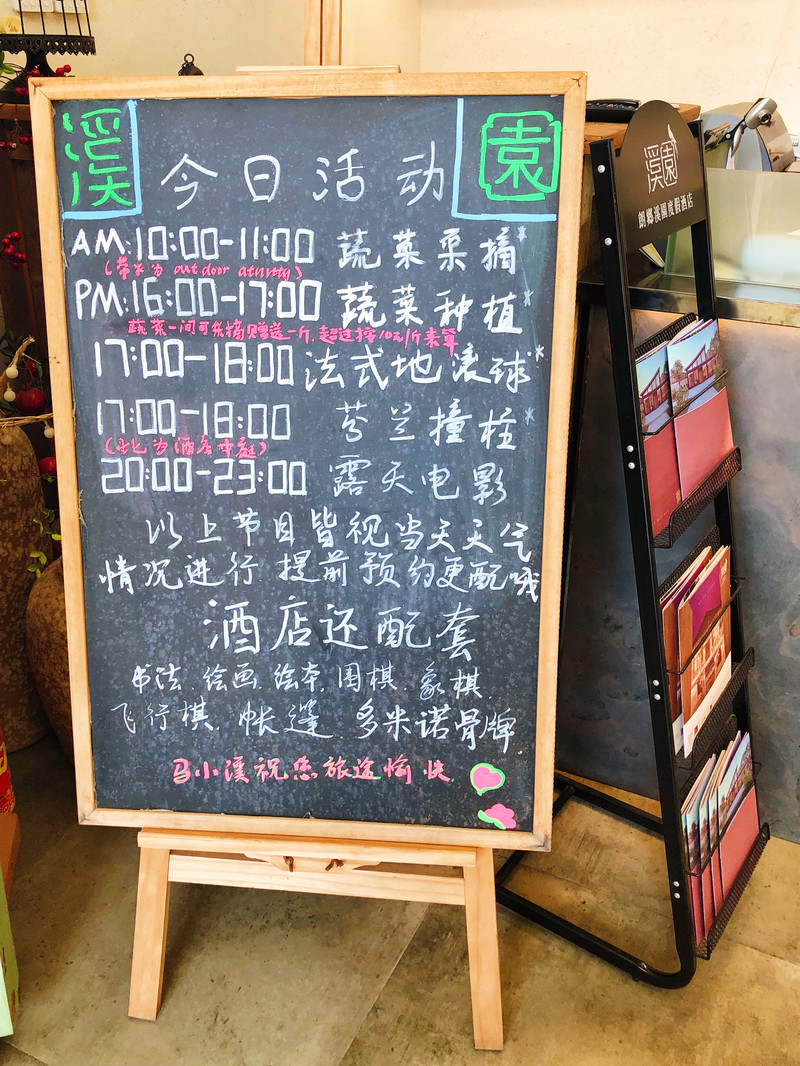 溪 今日活动 園
AM:10:00-11:00 蔬菜采摘*
(带*为outdoor ativity)
PM:16:00-17:00 蔬菜种植*
蔬菜一间可采摘赠送一斤,超过按10元/斤来算
17:00-18:00 法式地滚球*
17:00-18:00 芬兰撞柱*
(无*为酒店中庭)
20:00-23:00 露天电影
以上节目皆视当天天气
情况进行 提前预约更配哦
酒店还配套
书法.绘画.绘本.围棋.象棋.
飞行棋.帐篷.多米诺骨牌.
马小溪祝您旅途愉快.
溪園
朗鄉溪園度假酒店